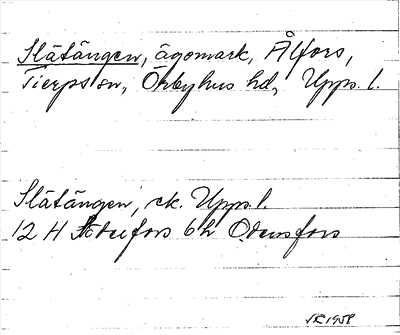 Slätängen, ägomark, Ålfors,
Tierps sn, Örbyhus hd, Upps. l.
Slätängen, ek. Upps. l.
12 H Söderfors 6h Odensfors
SK 1958